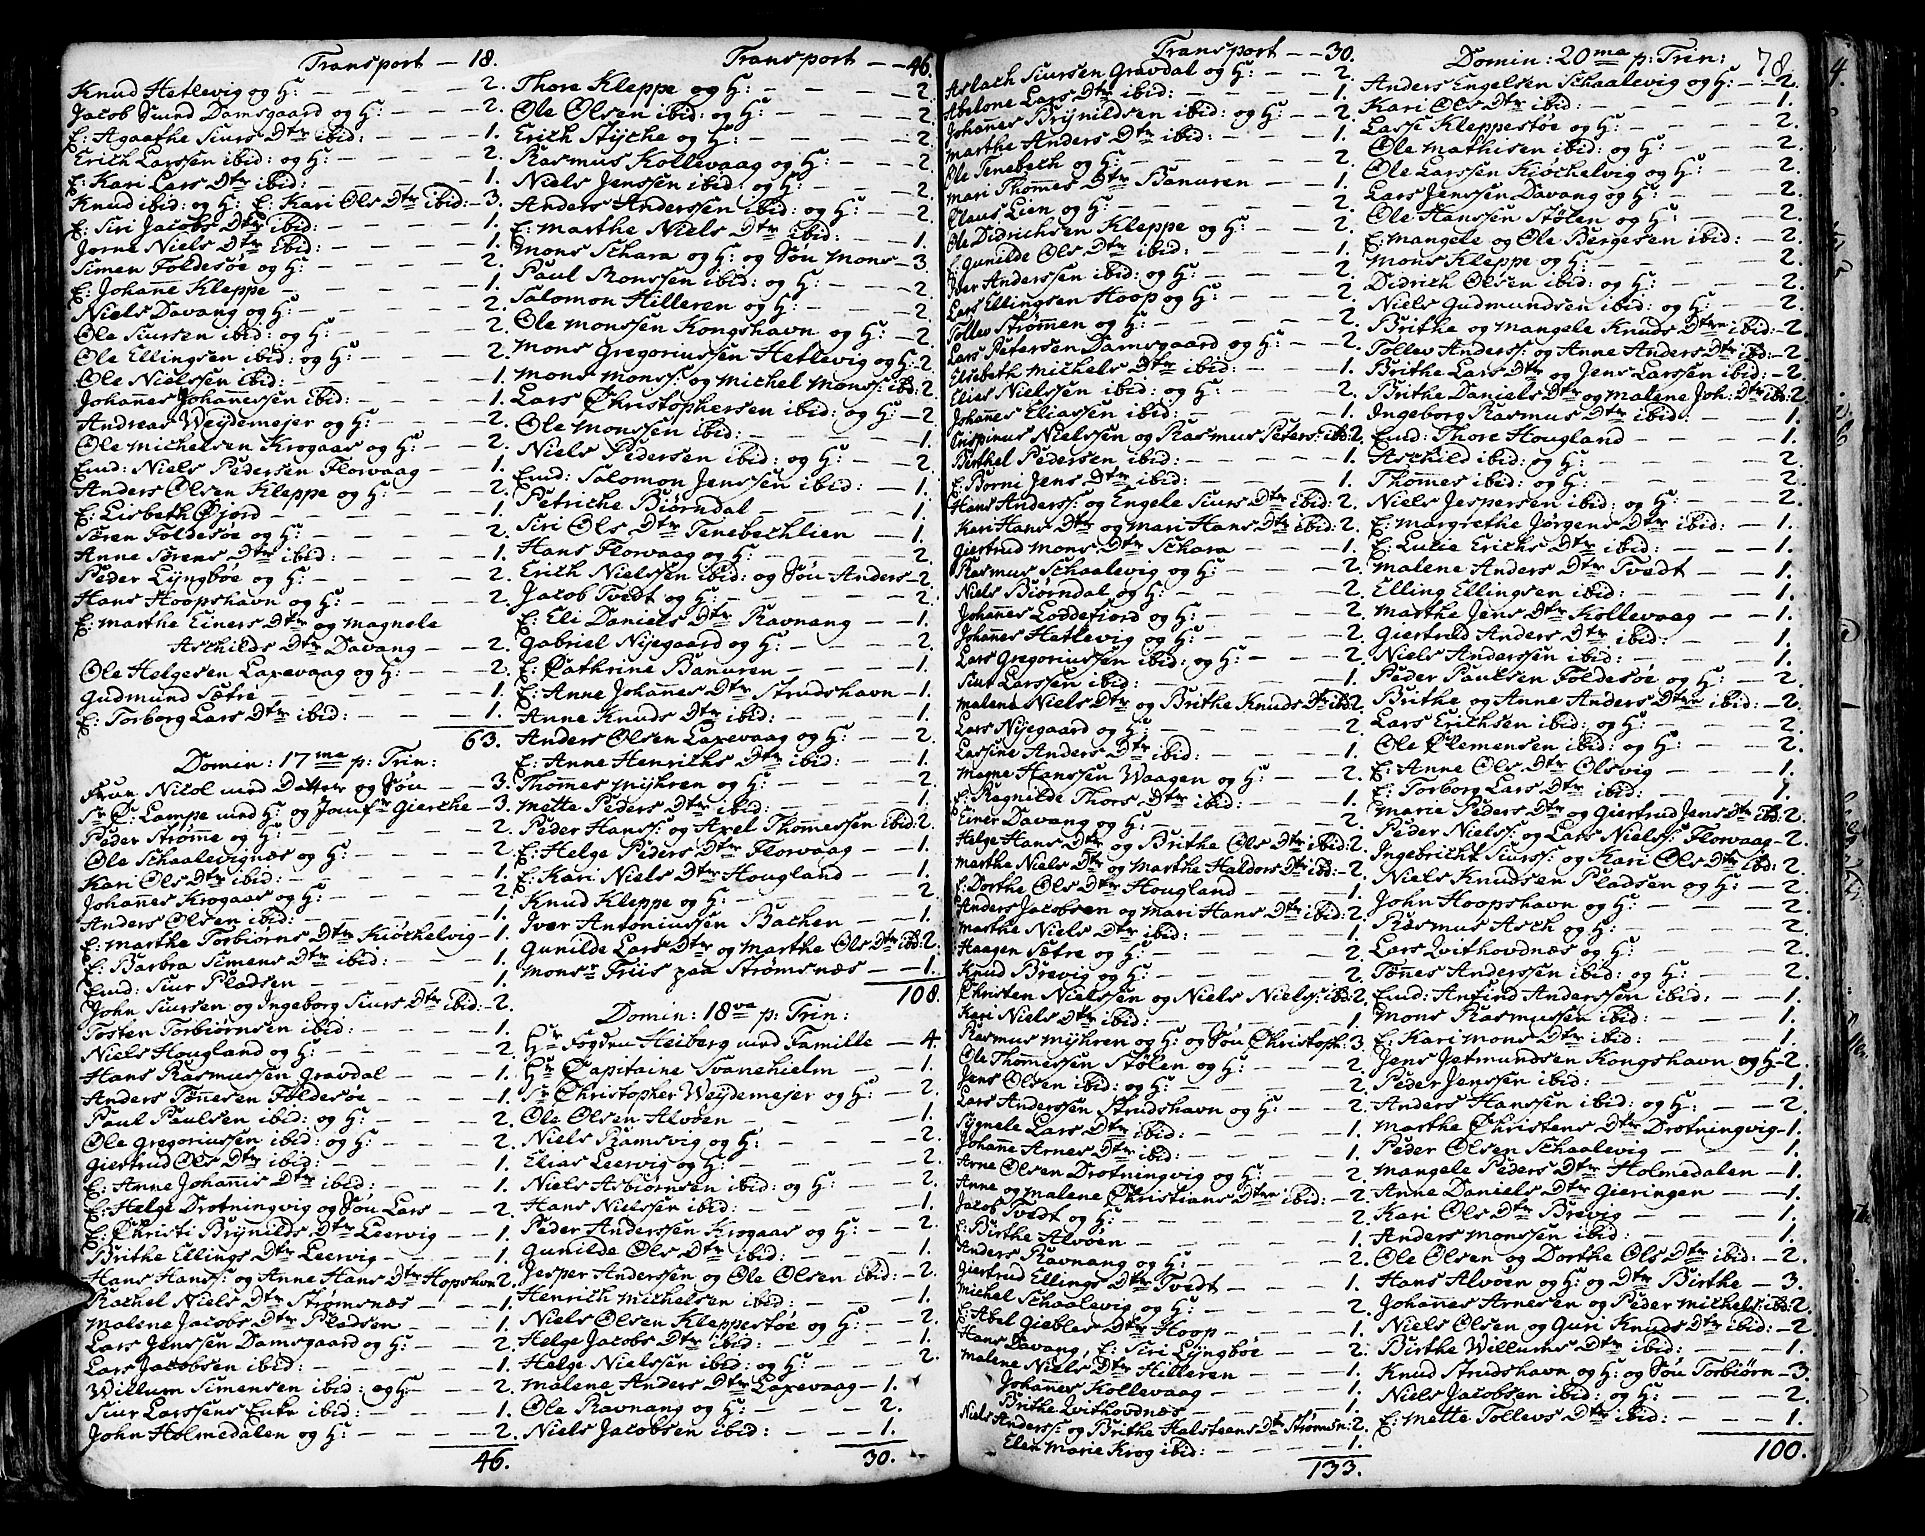 Transport — 18.
Knud Hetlevig og H: — — — 2.
Jacob Sund Damsgaard og H: — — 2.
E: Agaathe Siurs Dtr ibid: — — 1.
Erich Larssen ibid: og H: — — — 2.
E: Kari Lars Dtr ibid: — — — 1.
Knud ibid: og H: E: Kari Ols Dtr ibid: — 3.
E: Siri Jacobs Dtr ibid: — — — 1.
Jorne Niels Dtr ibid: — — — 1.
Simen Foldesøe og H: — — — 2.
E: Johane Kleppe — — — 1.
Niels Davang og H: — — — 2.
Ole Siursen ibid: og H: — — — 2.
Ole Ellingsen ibid: og H: — — — 2.
Ole Nielssen ibid: — — — 1.
Johannes Johanessen ibid: — — — 1.
Andreas Weydemejer og H: — — 2.
Ole Michelsen Krogaas og H: — — 2.
Eund: Niels Pedersen Florvaag — — 1.
Anders Olsen Kleppe og H: — — 2.
E: Lisbeth Øjord — — — 1.
Søren Foldesøe og H: — — — 2.
Anne Sørens Dtr ibid: — — — 1.
Peder Lyngbøe og H: — — — 2.
Hans Hoopshavn og H: — — — 2.
E: Marthe Einers Dtr og Magnele
Aschilds Dtr Davang — — 2.
Ole Helgesen Laxevaag og H: — — 2.
Gudmund Sætre — — — 1.
E: Torborg Lars Dtr ibid: — — — 1.
63.
Domin: 17ma p: Trin:
Frue Nicol med Datter og Søn — 3.
Sr C: Lampe med H: og Jomfr Gierthe — 3.
Peder Strømme og H: — — — 2.
Ole Schaalevignæs og H: — — — 2.
Kari Ols Dtr ibid: — — — 1.
Johannes Krogaas og H: — — — 2.
Anders Olsen ibid: — — — 1.
E: Marthe Torbiørns Dtr Kiøchelvig — 1.
E: Barbra Simens Dtr ibid: — — 1.
Eund: Siur Pladsen — — — 1.
John Siursen og Ingeborg Siurs Dtr ibid: — 2.
Tosten Torbiørnsen ibid: — — — 1.
Niels Hougland og H: — — — 2.
Hans Rasmussen Gravdal — — — 1.
Anders Tønesen Foldesøe — — — 1.
Paul Paulsen ibid: og H: — — — 2.
Ole Gregoriussen ibid: og H: — — 2.
Giertrud Ols Dtr ibid: — — — 1.
E: Anne Johannis Dtr ibid: — — — 1.
E: Helge Drotningvig og Søn Lars — — 2.
E: Christi Brynilds Dtr Leervig — — 1.
Brithe Ellings Dtr Leervig — — — 1.
Hans Hanss: og Anne Hans Dtr Hopshavn 2.
Rachel Niels Dtr Strømsnæs — — — 1.
Malene Jacobs Dtr Pladsen — — — 1.
Lars Jenssen Damsgaard og H: — — 2.
Lars Jacobsen ibid: — — — 1.
Willum Simensen ibid: og H: — — 2.
Siur Larssens Enke ibid: — — — 1.
John Holmedalen og H: — — — 2.
46.
Transport — — 46.
Thore Kleppe og H: — — — 2.
Ole Olsen ibid: og H: — — — 2.
Erich Styche og H: — — — 2.
Rasmus Kollevaag og H: — — 2.
Niels Jenssen ibid: og H: — — — 2.
Anders Anderssen ibid: og H: — — 2.
E: Marthe Niels Dtr ibid: — — 1.
Mons Schara og H: og Søn Mons — 3.
Paul Monssen ibid: og H: — — 2.
Salomon Hilleren og H: — — 2.
Ole Monssen Kongshavn og H: — 2.
Mons Gregoriussen Hetlevig og H: 2.
Mons Monss: og Michel Monss: ibid: 2.
Lars Christophersen ibid: og H: — 2.
Ole Monssen ibid: — — — 1.
Niels Pedersen ibid: og H: — — 2.
Eund: Salomon Jenssen ibid: — — 1.
Petriche Biørndal — — — 1.
Siri Ols Dtr Tenebechlien — — 1.
Hans Florvaag og H: — — — 2.
Erich Nielssen ibid: og Søn Anders — 2.
Jacob Tvedt og H: — — — 2.
E: Eli Daniels Dtr Ravnang — — 1.
Gabriel Nijegaard og H: — — — 2.
E: Cathrine Banuren — — — 1.
E: Anne Johannes Dtr Strudshavn — 1.
Anne Knuds Dtr ibid: — — — 1.
Anders Olsen Laxevaag og H: — — 2.
E: Anne Henrichs Dtr ibid: — — 1.
Thommes Myhren og H: — — — 2.
Mette Peders Dtr ibid: — — — 1.
Peder Hanss: og Axel Thommessen ibid: 2.
E: Helge Peders Dtr Florvaag — — 1.
E: Kari Niels Dtr Hougland — — 1.
Knud Kleppe og H: — — — 2.
Iver Antoniussen Bachen — — 1.
Gunilde Lars Dtr og Marthe Ols Dtr ibd: 2.
Monsr Friis paa Strømsnæs — — 1.
108.
Domin: 18va p: Trin:
Hr Fogden Heiberg med Famille — 4.
Hr Capitaine Svanehielm — — 1.
Sr Christopher Weydemejer og H: — 2.
Ole Olsen Alvøen — — — 1.
Niels Ramsvig og H: — — — 2.
Elias Leervig og H: — — — 2.
Niels Asbiørnsen ibid: og H: — — 2.
Hans Nielssen ibid: — — — 1.
Peder Anderssen Krogaas og H: — 2.
Gunilde Ols Dtr ibid: — — — 1.
Jesper Anderssen og Ole Olsen ibid: — 2.
Henrich Michelsen ibid: — — — 1.
Niels Olsen Kleppestøe og H: — — 2.
Helge Jacobs Dtr ibid: — — — 1.
Helge Nielssen ibid: og H: — — 2.
Malene Anders Dtr Laxevaag — 1.
Ole Ravnang og H: — — — 2.
Niels Jacobsen ibid: — — — 1.
30.
Transport — — 30.
Aslach Siursen Gravdal og H: — — 2.
Abelone Lars Dtr ibid: — — — 1.
Johannes Brynildsen ibid: og H: — — 2.
Marthe Anders Dtr ibid: — — — 1.
Ole Tenebech og H: — — — 2.
Mari Thommes Dtr Banuren — — 1.
Claus Lien og H: — — — 2.
Ole Didrichsen Kleppe og H: — — 2.
E: Gunilde Ols Dtr ibid: — — — 1.
Iver Anderssen ibid: og H: — — 2.
Lars Ellingsen Hoop og H: — — 2.
Tollev Strømmen og H: — — — 2.
Lars Petersen Damsgaard og H: — — 2.
Elsebeth Michels Dtr ibid: — — 1.
Elias Nielssen ibid: og H: — — 2.
Johannes Eliassen ibid: — — — 1.
Crispinus Nielssen og Rasmus Peters: ibd: 2.
Berthel Pedersen ibid: — — — 1.
E: Borni Jens Dtr ibid: — — — 1.
Hans Anderss: og Engele Siurs Dtr ibid: 2.
Kari Hans Dtr og Mari Hans Dtr ibid: 2.
Giertrud Mons Dtr Schara — — — 1.
Rasmus Schaalevig og H: — — — 2.
Niels Biørndal og H: — — — 2.
Johannes Loddefiord og H: — — — 2.
Johannes Hetlevig og H: — — — 2.
Lars Gregoriussen ibid: og H: — — 2.
Siur Larssen ibid: — — — 1.
Malene Niels Dtr og Brithe Knuds Dtr ibd: 2.
Lars Nijegaard og H: — — — 2.
Lassine Anders Dtr ibid: — — — 1.
Mogne Hanssen Waagen og H: — — 2.
E: Ragnilde Thors Dtr ibid: — — — 1.
Einer Davang og H: — — — 2.
Helge Hans Dtr og Brithe Ols Dtr ibid: 2.
Marthe Niels Dtr og Marthe Haldors Dtr ibd: 2.
E: Dorthe Ols Dtr Hougland — — — 1.
Anders Jacobsen og Mari Hans Dtr ibid: 2.
Marthe Niels Dtr ibid: — — — 1.
Haagen Sætre og H: — — — 2.
Knud Brevig og H: — — — 2.
Christen Nielssen og Niels Nielss: ibd: 2.
Kari Niels Dtr ibid: — — — 1.
Rasmus Myhren og H: og Søn Christoph: 3
Ole Thommessen Stølen og H: — — 2.
Jens Olsen ibid: og H: — — — 2.
Lars Anderssen Strudshavn og H: — 2.
Sygnele Lars Dtr ibid: — — — 1.
Johanne Arnes Dtr ibid: — — — 1.
Arne Olsen Drotningvig og H: — — 2.
Anne og Malene Christians Dtrr ibid: — 2.
Jacob Tvedt og H: — — — 2.
E: Birthe Alvøen — — — 1.
Anders Ravnang og H: — — — 2.
Giertrud Ellings Dtr Tvedt — — 1.
Michel Schaalevig og H: — — — 2.
E: Abel Giebles Dtr Hoop — — — 1.
Hans Davang, E: Siri Lyngbøe — — 2.
Malene Niels Dtr Hilleren — — 1.
Johannes Kollevaag — — — 1.
Brithe Qvithovdnæs — — — 1.
Niels Anderss: og Brithe Halsteens Dtr Strømsn: 2.
Elen Marie Krog ibid: — — — 1.
133.
Domin: 20ma p: Trin: 78
Anders Engelsen Schaalevig og H: — 2.
Kari Ols Dtr ibid: — — — 1.
Lasse Kleppestøe og H: — — — 2.
Ole Mathisen ibid: og H: — — — 2.
Ole Larssen Kiøchelvig og H: — — 2.
Lars Jenssen Davang og H: — — 2.
Ole Hanssen Stølen og H: — — 2.
E: Mangele og Ole Bergesen ibid: — 2.
Mons Kleppe og H: — — — 2.
Didrich Olsen ibid: og H: — — — 2.
Niels Gudmundsen ibid: og H: — — 2.
Brithe og Mangele Knuds Dtrr ibid: — 2.
Tollev Anderss: og Anne Anders Dtr ibd: — 2.
Brithe Lars Dtr og Jens Larssen ibid: — 2.
Brithe Daniels Dtr og Malene Joh: Dtr ibd: 2.
Ingeborg Rasmus Dtr ibid: — — — 1.
Eund: Thore Hougland — — — 1.
Aschild ibid: og H: — — — 2.
Thommes ibid: og H: — — — 2.
Niels Jespersen ibid: og H: — — 2.
E: Margrethe Jørgens Dtr ibid: — — 1.
E: Lucie Erichs Dtr ibid: — — — 1.
Malene Anders Dtr Tvedt — — — 1.
Elling Ellingsen ibid: — — — 1.
Marthe Jens Dtr Kollevaag — — 1.
Giertrud Anders Dtr ibid: — — — 1.
Niels Anderssen ibid: — — — 1.
Peder Paulsen Foldesøe og H: — — 2.
Brithe og Anne Anders Dtrr ibid: — — 2.
Lars Erichsen ibid: og H: — — — 2.
Ole Clemensen ibid: og H: — — — 2.
E: Anne Ols Dtr Olsvig — — — 1.
E: Torborg Lars Dtr ibid: — — — 1.
Marie Peders Dtr og Giertrud Jens Dtr ibd: 2.
Peder Nielss: og Lars Nielss: Florvaag — 2.
Ingebricht Siurss: og Kari Ols Dtr ibd: 2.
Niels Knudsen Pladsen og H: — — 2.
John Hoopshavn og H: — — — 2.
Rasmus Asch og H: — — — 2.
Lars Qvithovdnæs og H: — — — 2.
Tønes Anderssen ibid: og H: — — 2.
Eund: Anfind Anderssøn ibid: — — 1.
Mons Rasmussen ibid: — — — 1.
E: Kari Mons Dtr ibid: — — — 1.
Jens Jetmundsen Kongshavn og H — 2.
Peder Jenssen ibid: — — — 1.
Anders Hanssen ibid: og H: — — — 2.
Marthe Christens Dtr Drotningvig — 1.
Peder Olsen Schaalevig — — — 1.
Mangele Peders Dtr Holmedalen — 1.
Anne Daniels Dtr Gieringen — — 1.
Kari Ols Dtr Brevig — — — 1.
Anders Monssen ibid: — — — 1.
Ole Olsen og Dorthe Ols Dtr ibid: — 2.
Hans Alvøen og H: og Dtr Birthe — 3.
Johannes Arnesen og Peder Michels: ibd: 2.
Niels Olsen og Guri Knuds Dtr ibid: — 2.
Birthe Willums Dtr ibid: — — — 1.
Knud Strudshavn og H: og Søn Torbiørn — 3.
Niels Jacobsen ibid: og H: — — — 2.
E: Mette Tollevs Dtr ibid: — — — 1.
100.